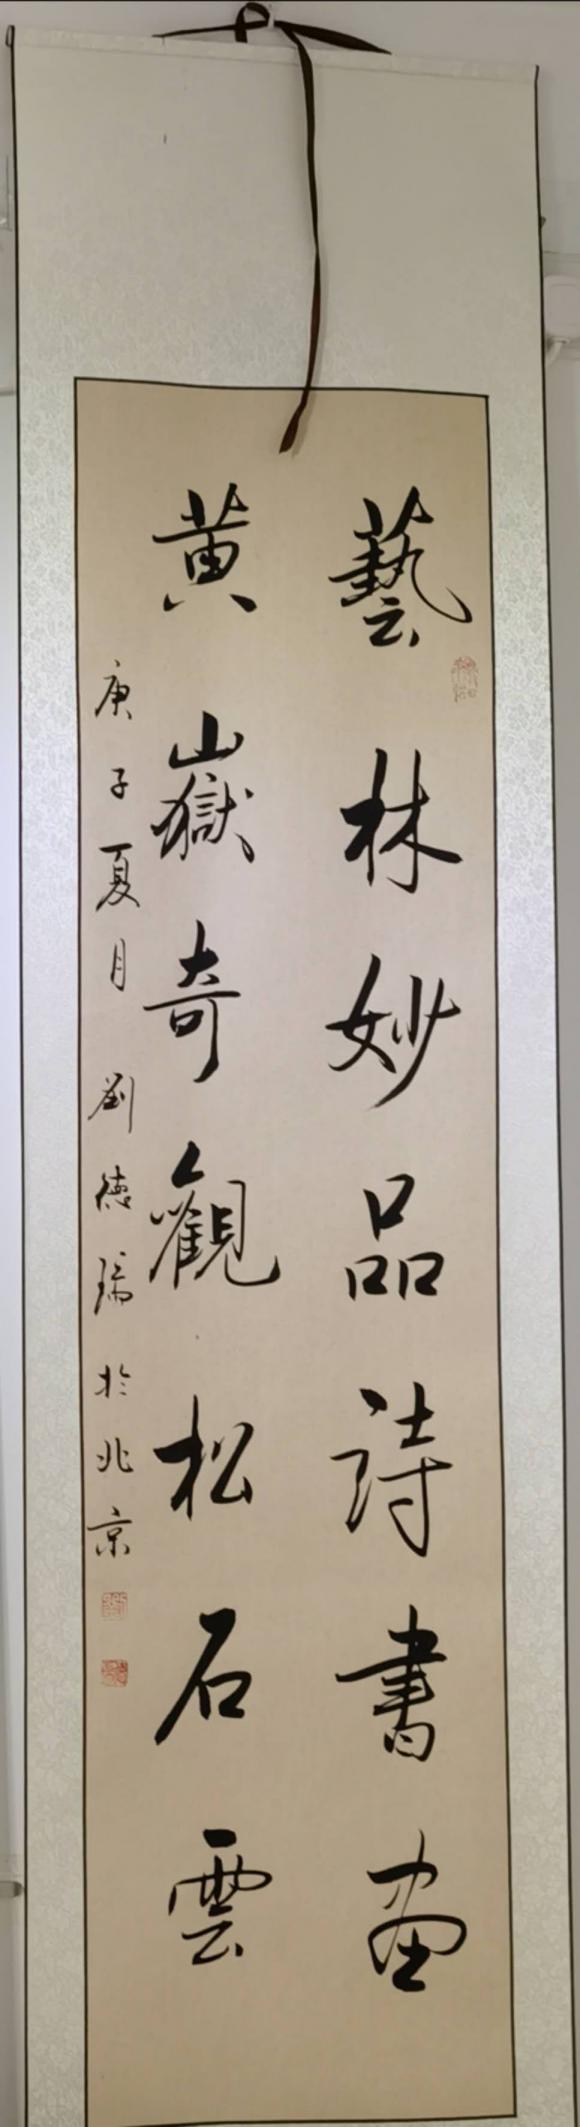 藝林妙品詩書畫
黄嶽奇觀松石雲
庚子夏月 劉德瑞於北京